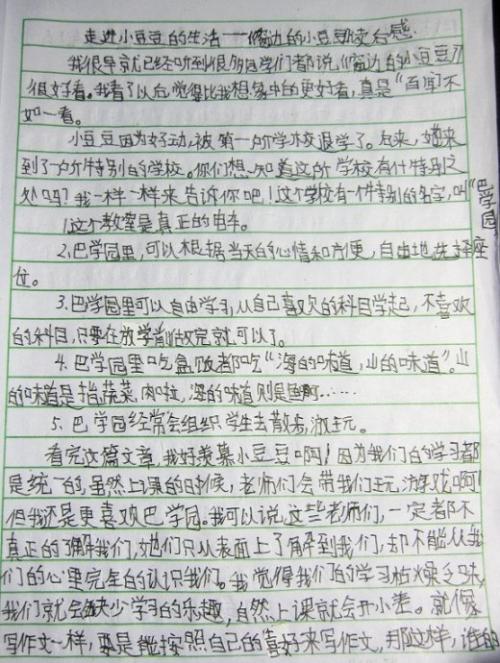 走进小豆豆的生活——《窗边的小豆豆》读后感
我很早就已经听到很多同学们都说,《窗边的小豆豆》
很好看。我看了以后,觉得比我想象中的更好看,真是"百闻不
如一看。
小豆豆因为好动,被第一所学校退学了。后来,她来
到了一所特别的学校。你们想知道这所学校有什特别之
处吗?我一样一样来告诉你吧!这个学校有一个特别的名字,叫"巴学园"
1.这个教室是真正的电车。
2.巴学园里,可以根据当天的心情和方便,自由地选择座
位。
3.巴学园里可以自由学习,从自己喜欢的科目学起,不喜欢
的科目,只要在放学前做完就可以了。
4.巴学园里吃盒饭都吃"海的味道,山的味道"。山
的味道是指蔬菜、肉啦,海的味道则是鱼啊……
5.巴学园经常会组织学生去散步,游玩。
看完这篇文章,我好羡慕小豆豆啊!因为我们的学习都
是统一的,虽然上课的时候,老师们会带我们玩游戏啊!
但我还是更喜欢巴学园。我可以说,这些老师们,一定都不
真正的了解我们,她们只从表面上了解到我们,却不能从我
们的心里完全的认识我们。我觉得我们的学习枯燥乏味,
我们就会缺少学习的乐趣,自然上课就会开小差。就像
写作文一样,要是能按照自己的喜好来写作文,那这样,谁的